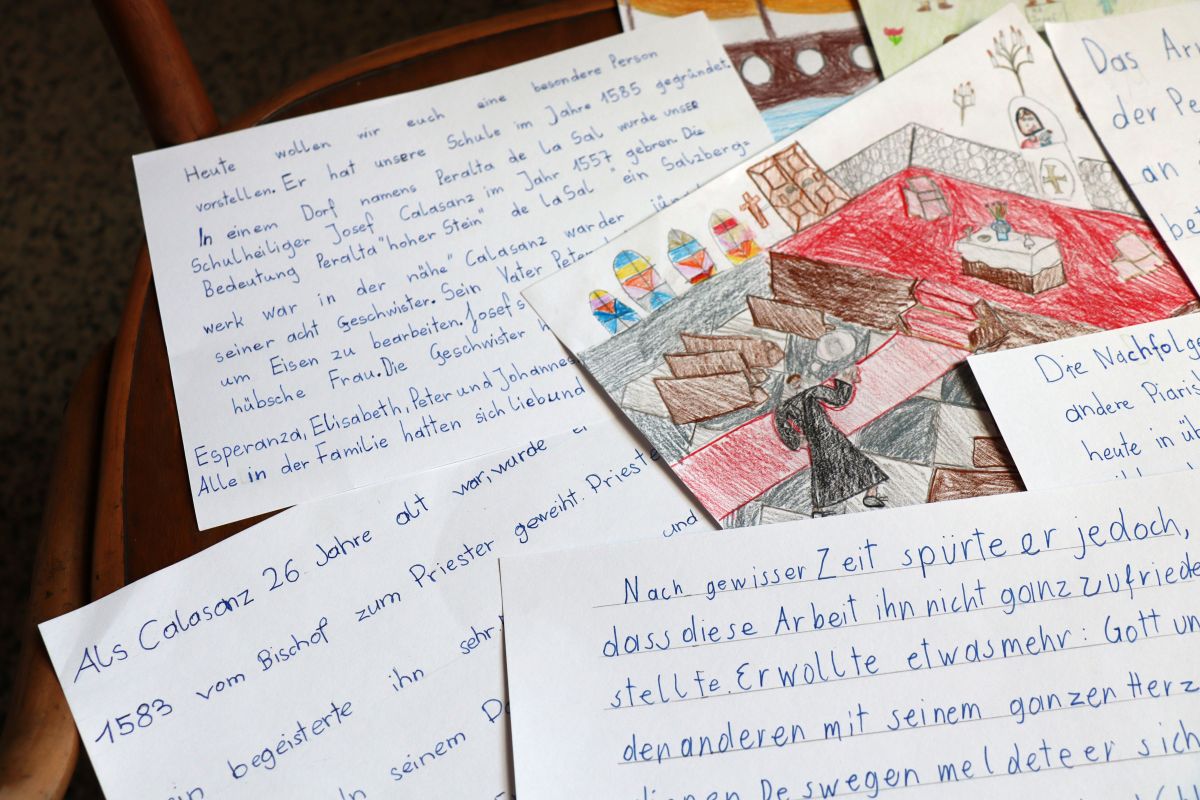 Heute wollen wir euch eine besondere Person
vorstellen. Er hat unsere Schule im Jahre 1585 gegründet.
In einem Dorf namens Peralta de la Sal wurde unser
Schulheiliger Josef Calasanz im Jahr 1557 gebren. Die
Bedeutung Peralta "hoher Stein" de la Sal "ein Salzberg=
werk war in der nähe" Calasanz war der
seiner acht Geschwister. Sein Vater
um Eisen zu bearbeiten. Josef's
hübsche Frau. Die Geschwister
Esperanza, Elisabeth, Peter und Johannes
Alle in der Familie hatten sich lieb und
Als Calasanz 26 Jahre alt war, wurde
1583 vom Bischof zum Priester geweiht.
und
begeisterte ihn sehr
In seinem
Das
der
an
Die Nachfolge
andere
heute in
Nach gewisser Zeit spürte er jedoch,
dass diese Arbeit ihn nicht ganz zufriede
stellte. Er wollte etwas mehr: Gott un
den anderen mit seinem ganzen Herz
Deswegen meldete er sich